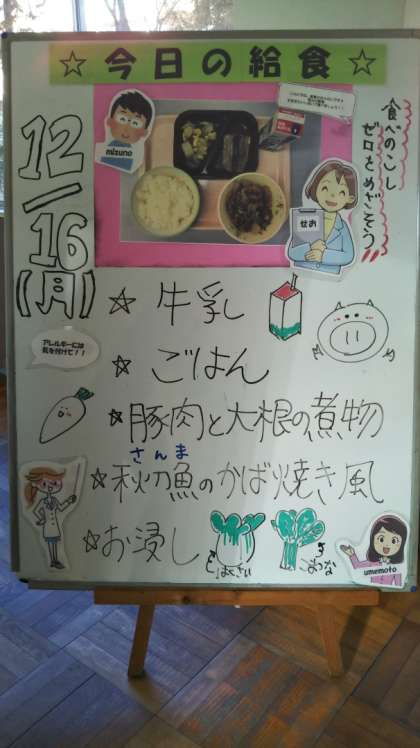 ☆今日の給食☆
mizuno
食べのこし
ゼロをめざそう!!
せお
12/16
(月)
アレルギーには
気を付けて!!
☆ 牛乳
☆ ごはん
☆豚肉と大根の煮物
さんま
☆秋刀魚のかば焼き風
☆お浸し
はくさい
こまつな
umemoto